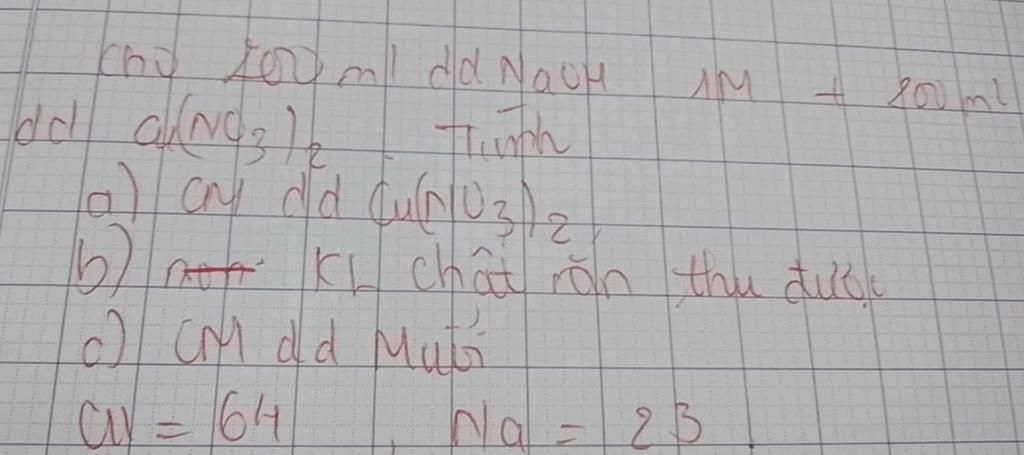 Cho 200 ml dd NaOH 1M + 200 ml
dd Cu(NO3)2. Tính
a) CM dd Cu(NO3)2
b) KL chất rắn thu được
c) CM dd Muối
Cu = 64, Na = 23.